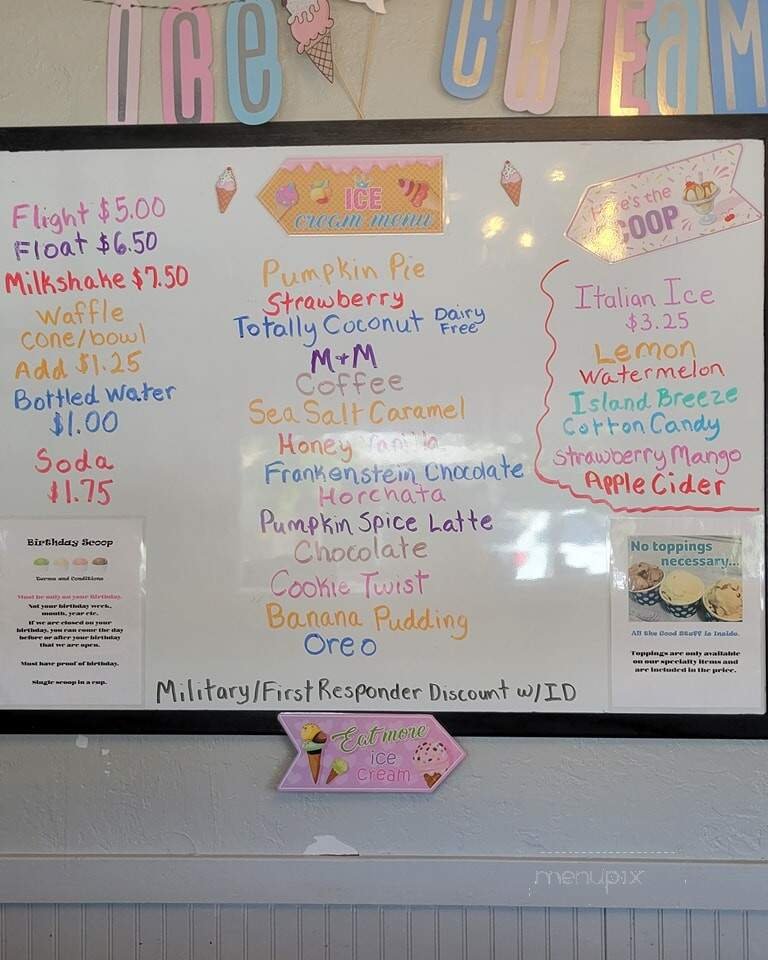 ICE CREAM
Flight $5.00
Float $6.50
Milkshake $7.50
Waffle
cone/bowl
Add $1.25
Bottled Water
$1.00
Soda
$1.75
Birthday Scoop
Terms and Conditions
Must be only on your Birthday.
Not your birthday week,
month, year etc.
If we are closed on your
birthday, you can come the day
before or after your birthday
that we are open.
Must have proof of birthday.
Single scoop in a cup.
ICE
cream menu
Pumpkin Pie
Strawberry
Totally Coconut Dairy
Free
M+M
Coffee
Sea Salt Caramel
Honey Vanilla
Frankenstein Chocolate
Horchata
Pumpkin Spice Latte
Chocolate
Cookie Twist
Banana Pudding
Oreo
Here's the
SCOOP
Italian Ice
$3.25
Lemon
Watermelon
Island Breeze
Cotton Candy
Strawberry Mango
Apple Cider
No toppings
necessary...
All the Good Stuff is Inside.
Toppings are only available
on our specialty items and
are included in the price.
Military/First Responder Discount w/ID
Eat more
ice
cream
menupix